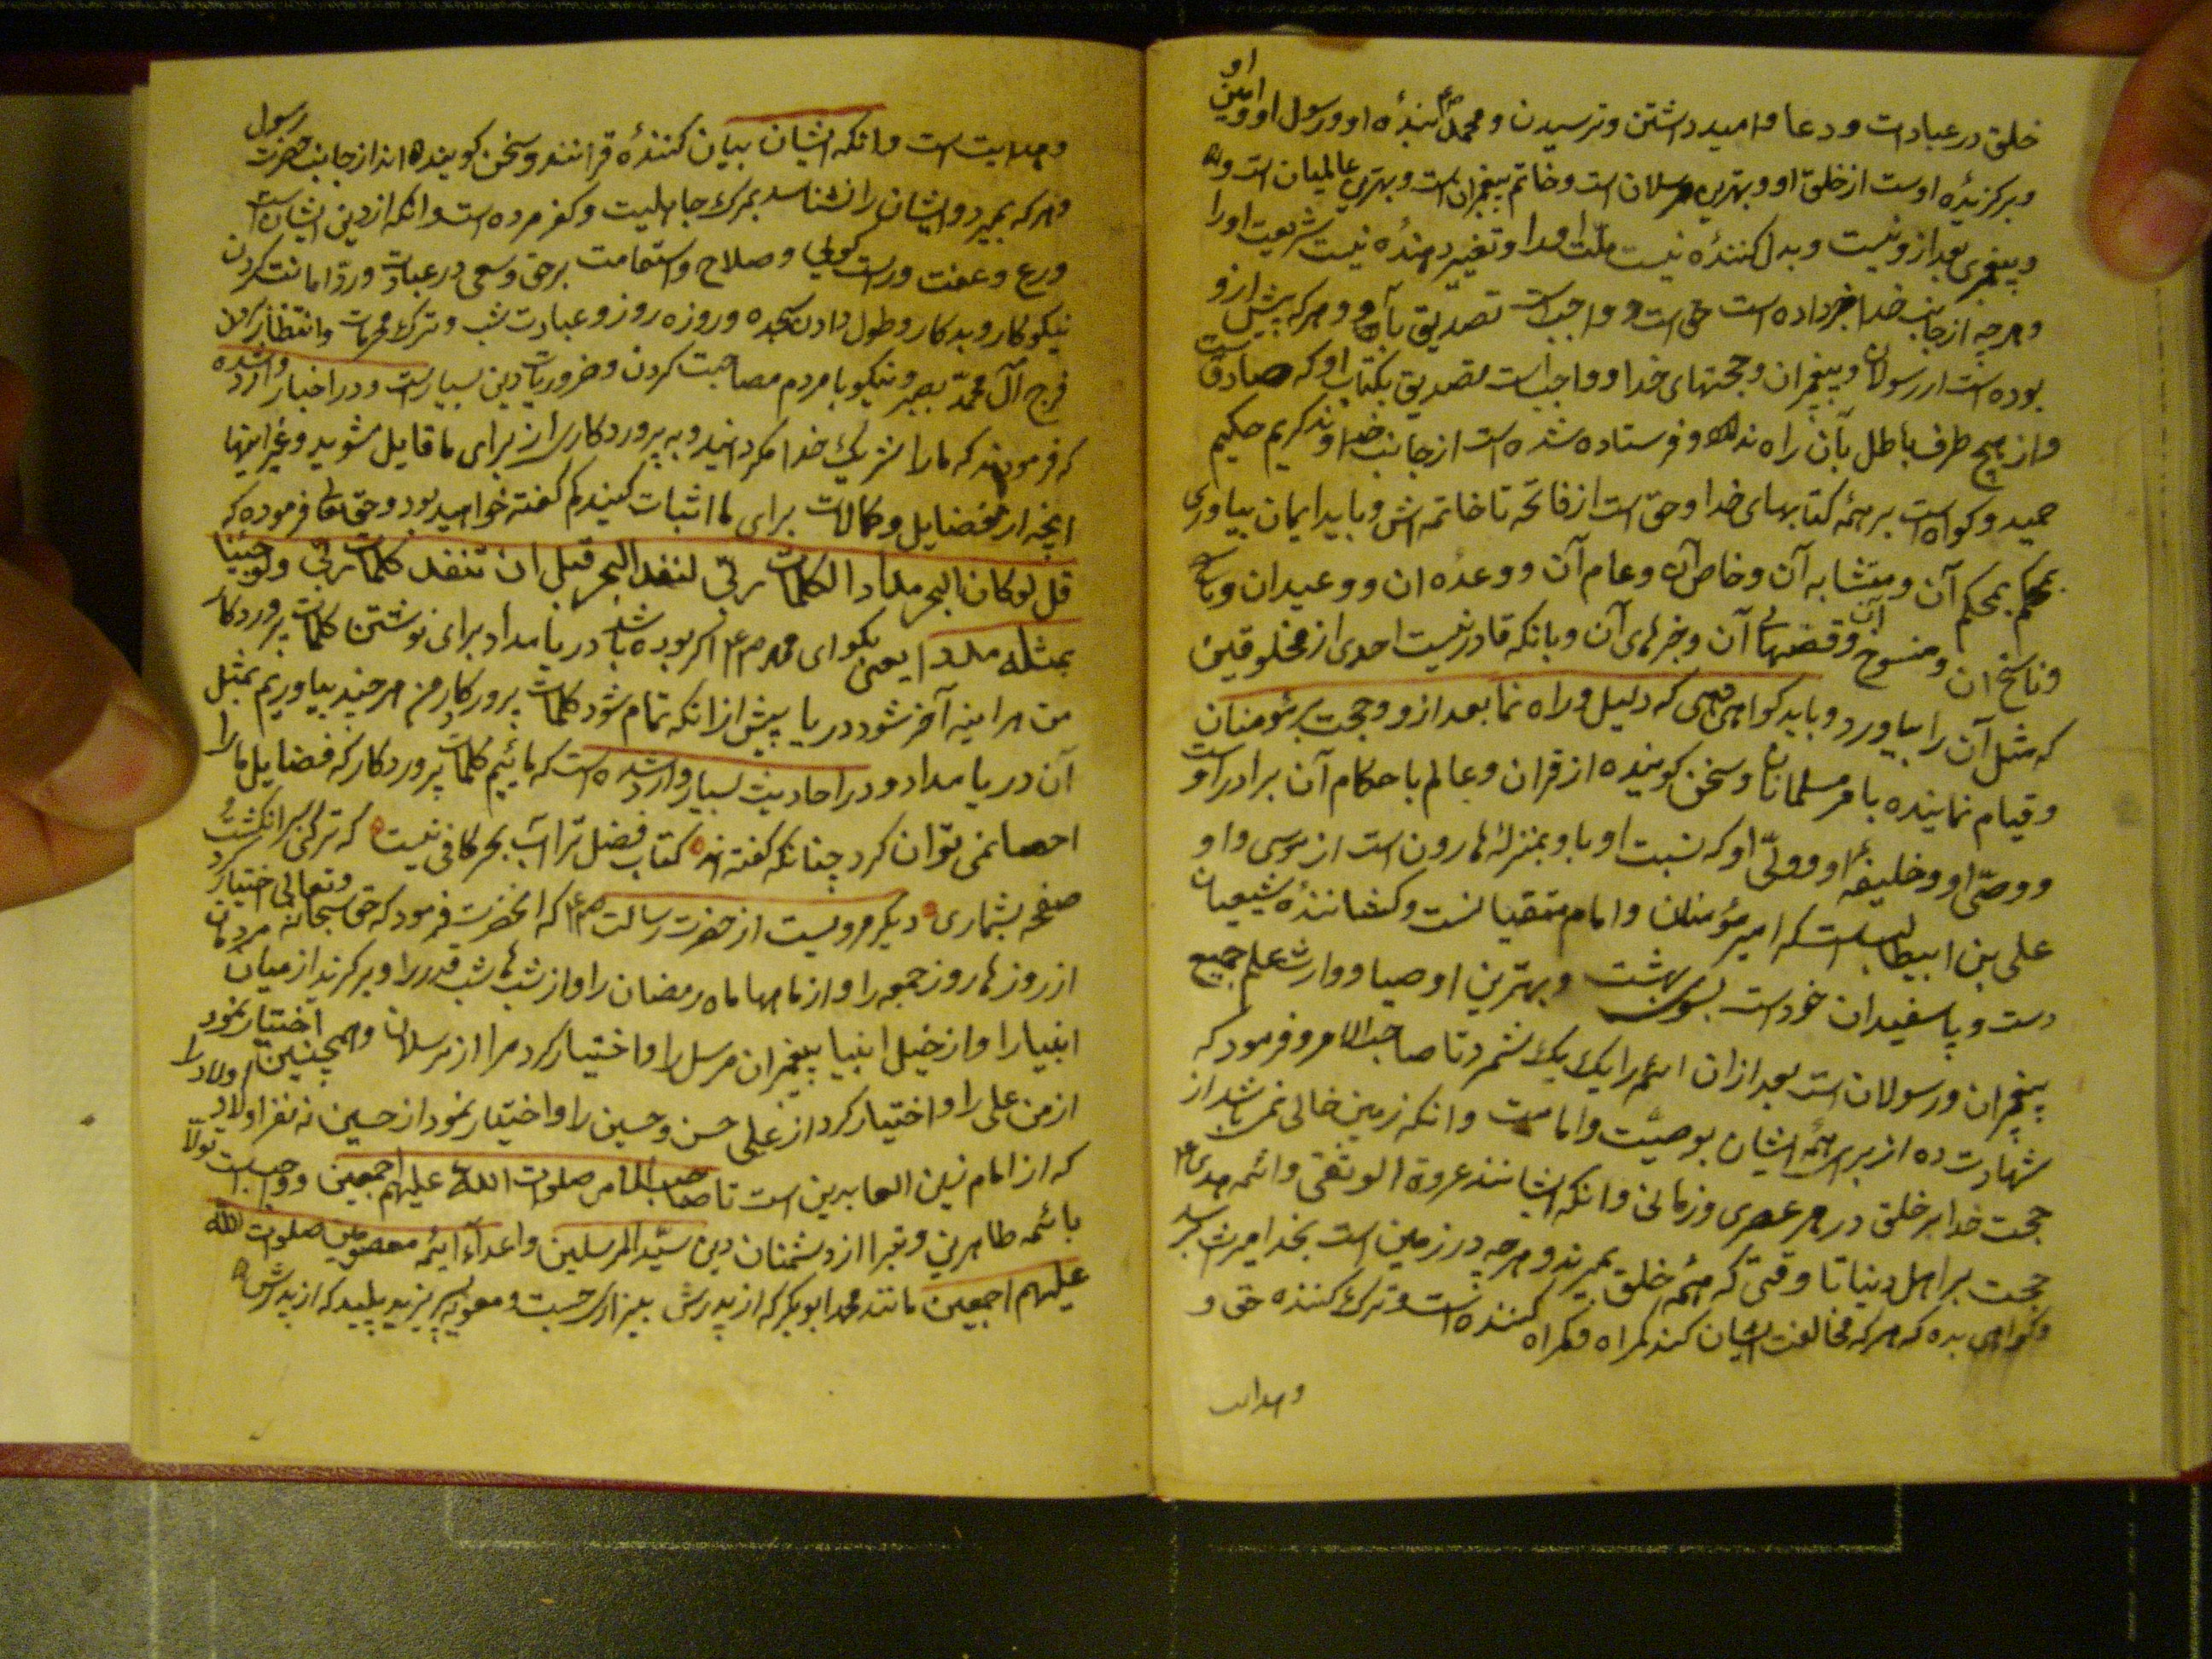 خلق در عبادات و دعا و امید داشتن و ترسیدن و محمد بنده او و رسول او و امین او
و برگزیده اوست از خلق او و بهترین مرسلان است و خاتم پیغمبران است و بهترین عالمیان است و
و پیغمبری بعد از و نیست و بدل کننده نیست ملت او را و تغییر دهنده نیست شریعت او را
و هرچه از جانب خدا خبر داده است حق است و واجبست تصدیق بآن و هر که پیش از و
بوده است از رسولان و پیغمبران و حجتهای خدا و واجبست تصدیق بکتاب او که صادقست
و از هیچ طرف باطل بآن راه ندارد و فرستاده شده است از جانب خداوند کریم حکیم
حمید و کواه است بر همهٔ کتابهای خدا و حق است از فاتحه تا خاتمه اش و باید ایمان بیاوری
بمحکم آن و متشابه آن و خاص آن و عام آن و وعده ان و وعید ان و
و ناسخ ان و منسوخ آن و قصهای آن و خبرهای آن و بانکه قادر نیست احدی از مخلوقین
که مثل آن را بیاورد و باید کواهی دهی که دلیل و راه نما بعد از و و حجت بر مؤمنان
و قیام نماینده بامر مسلمانان و سخن کوینده از قران و عالم باحکام آن برادر اوست
و وصی او و خلیفه او و ولی او که نسبت او باو بمنزله هارون است از موسی و او
علی بن ابیطالبست که امیر مؤمنان و امام متقیانست و کشاننده شیعیان
دست و پا سفیدان خود است بسوی بهشت و بهترین اوصیا و وارث علم جمیع
پیغمبران و رسولان است بعد از ان ائمه را یک یک شمرد تا صاحب الامر و فرمود که
شهادت ده از برای همهٔ ایشان بوصیت و امامت و انکه زمین خالی نمی باشد از
حجت خدا بر خلق در هر عصری و زمانی و انکه ایشانند عروة الوثقی و ائمه هدی
حجت بر اهل دنیا تا وقتی که همهٔ خلق بمیرند و هرچه در زمین است بخدا میراث برسد
و کواهی بده که هر که مخالفت ایشان کند کمراه و کمراه کننده است و ترک کننده حق و
و هدایت
و هدایت است و انکه ایشان بیان کننده قرانند و سخن کوینده اند از جانب حضرت رسول
و هر که بمیرد و ایشان را نشناسد بمرک جاهلیت و کفر مرده است و انکه از دین ایشان است
ورع و عفت و راست کویی و صلاح و استقامت بر حق و سعی در عبادت و رد امانت کردن
نیکوکار و بدکار و طول دادن سجده و روزه روز و عبادت شب و ترک محرمات و انتظار بردن
فرج آل محمد بصبر و نیکو با مردم مصاحبت کردن و ضروریات دین بسیارست و در اخبار وارد شده
که فرمودند که ما را شریک خدا مکردانید و به پروردکاری از برای ما قایل مشوید و غیر اینها
انچه از فضایل و کمالات برای ما اثبات کنید کم کفته خواهید بود و حق تعالی فرموده که
قل لو كان البحر مدادا لكلمات ربي لنفد البحر قبل ان تنفد كلمات ربي ولو جئنا
بمثله مددا یعنی بکو ای محمد ص اکر بوده باشد دریا مداد برای نوشتن کلمات پروردکار
من هراینه آخر شود دریا پیش از انکه تمام شود کلمات پروردکار من هر چند بیاوریم بمثل
آن دریا مداد و در احادیث بسیار وارد شده است که مائیم کلمات پروردکار که فضایل ما را
احصا نمی توان کرد چنانکه کفته اند کتاب فضل ترا آب بحر کافی نیست که تر کنی سر انکشت
صفحه بشماری دیکر مرویست از حضرت رسالت ص که انحضرت فرمود که حق سبحانه و تعالی اختیار کرد
از روزها روز جمعه را و از ماهها ماه رمضان را و از شبها شب قدر را و برکزید از میان مردمان
انبیا را و از خیل انبیا پیغمبران مرسل را و اختیار کرد مرا از مرسلان و همچنین اختیار نمود
از من علی را و اختیار کرد از علی حسن و حسین را و اختیار نمود از حسین نه نفر اولاد اولاد را
که از امام زین العابدین است تا صاحب الامر صلوات الله علیهم اجمعین و واجبست تولا
بائمه طاهرین و تبرا از دشمنان دین سید المرسلین و اعداء ائمه معصومین صلوات الله
علیهم اجمعین مانند محمد ابوبکر که از پدرش بیزاری جست و معویه پسر یزید پلید که از پدرش